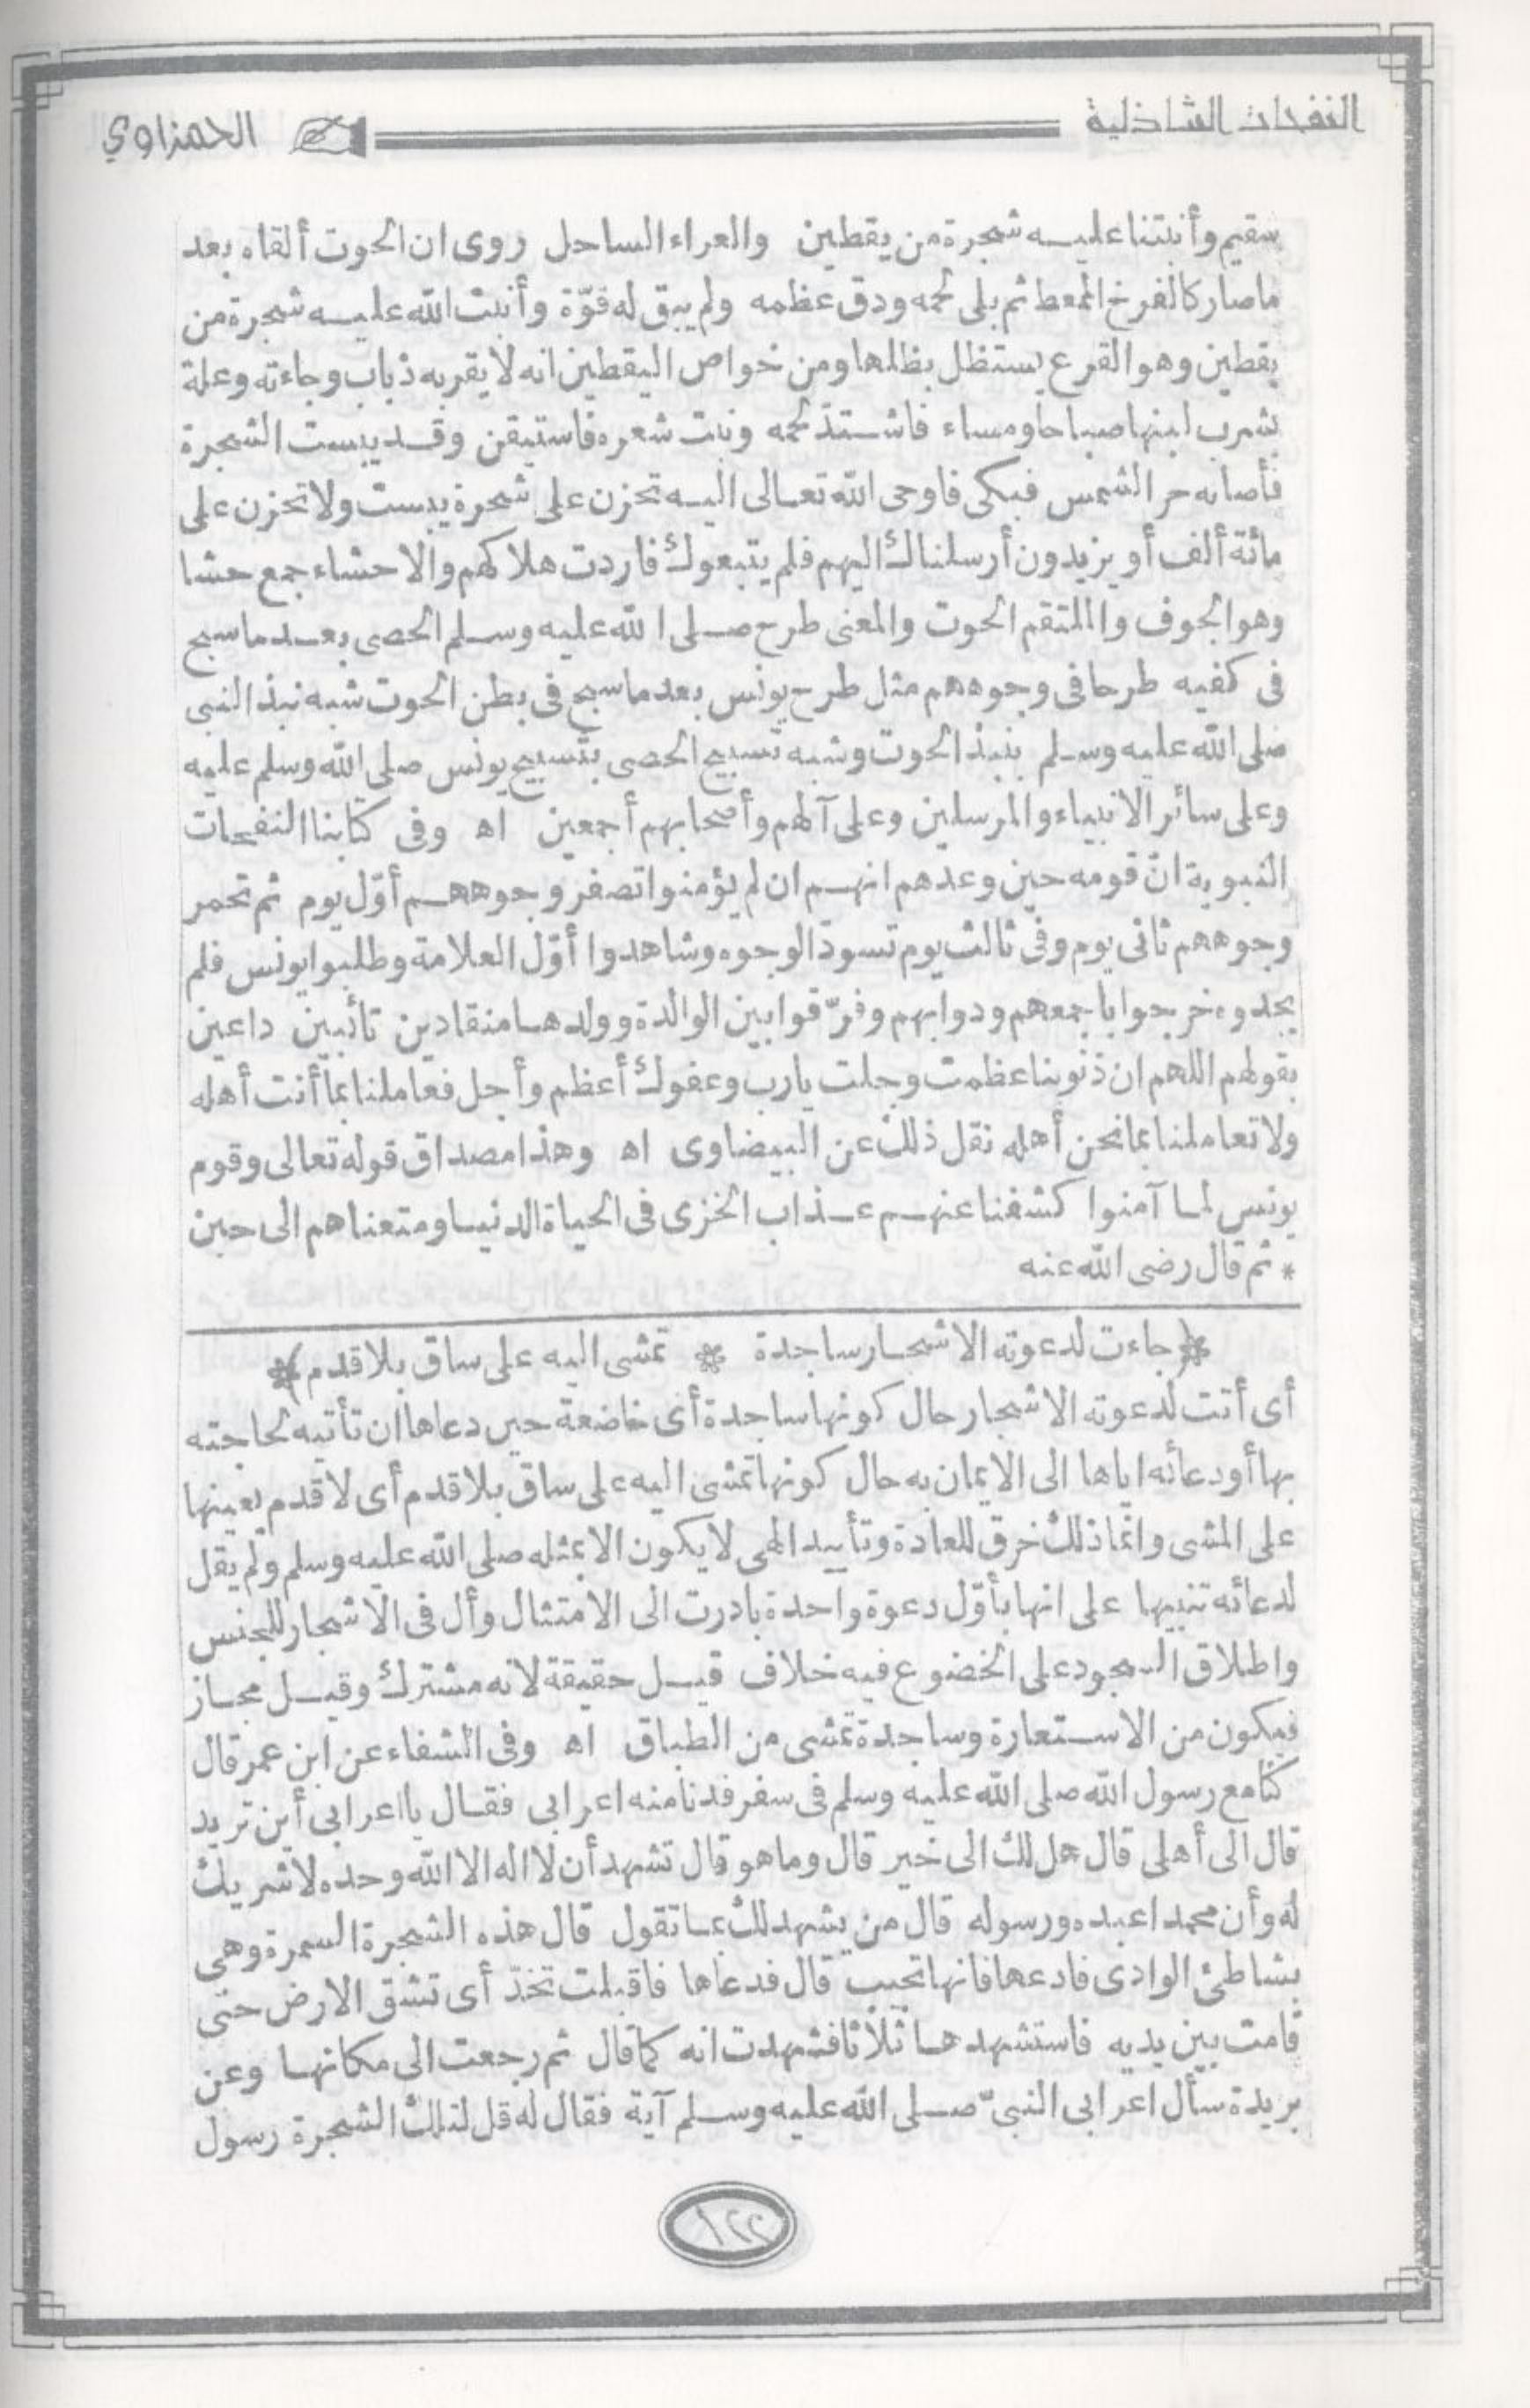 النفحات الشاذلية
الحمزاوي
سقيم وأنبتنا عليه شجرة من يقطين والعراء الساحل روى ان الحوت ألقاه بعد
ما صار كالفرخ الممعط ثم بلى لحمه ودق عظمه ولم يبق له قوّة وأنبت الله عليه شجرة من
يقطين وهو القرع يستظل بظلها ومن خواص اليقطين انه لا يقربه ذباب وجاءته وعلة
يشرب لبنها صباحا ومساء فاشتد لحمه ونبت شعره فاستيقن وقد يبست الشجرة
فأصابه حر الشمس فبكى فاوحى الله تعالى اليه تحزن على شجرة يبست ولا تحزن على
مائة ألف أو يزيدون أرسلناك اليهم فلم يتبعوك فاردت هلاكهم والاحشاء جمع حشا
وهو الجوف والملتقم الحوت والمعنى طرح صلى الله عليه وسلم الحصى بعد ما سبح
فى كفيه طرحا فى وجوههم مثل طرح يونس بعد ما سبح فى بطن الحوت شبه نبذ النبى
صلى الله عليه وسلم بنبذ الحوت وشبه تسبيح الحصى بتسبيح يونس صلى الله وسلم عليه
وعلى سائر الانبياء والمرسلين وعلى آلهم وأصحابهم أجمعين اه وفى كتابنا النفحات
النبوية انّ قومه حين وعدهم انهم ان لم يؤمنوا تصفر وجوههم أوّل يوم ثم تحمر
وجوههم ثانى يوم وفى ثالث يوم تسودّ الوجوه وشاهدوا أوّل العلامة وطلبوا يونس فلم
يجدوه خرجوا باجمعهم ودوابهم وفرّقوا بين الوالدة وولدها منقادين تائبين داعين
بقولهم اللهم ان ذنوبنا عظمت وجلت يا رب وعفوك أعظم وأجل فعاملنا بما أنت أهله
ولا تعاملنا بما نحن أهله نقل ذلك عن البيضاوى اه وهذا مصداق قوله تعالى وقوم
يونس لما آمنوا كشفنا عنهم عذاب الخزى فى الحياة الدنيا ومتعناهم الى حين
* ثم قال رضى الله عنه
(جاءت لدعوته الاشجار ساجدة * تمشى اليه على ساق بلا قدم)
أى أتت لدعوته الاشجار حال كونها ساجدة أى خاضعة حين دعاها ان تأتيه لحاجته
بها أو دعائه اياها الى الايمان به حال كونها تمشى اليه على ساق بلا قدم أى لا قدم يعينها
على المشى وانما ذلك خرق للعادة وتأييد الهى لا يكون الا بمثله صلى الله عليه وسلم ولم يقل
لدعائه تنبيها على انها بأوّل دعوة واحدة بادرت الى الامتثال وأل فى الاشجار للجنس
واطلاق السجود على الخضوع فيه خلاف قيل حقيقة لانه مشترك وقيل مجاز
فيكون من الاستعارة وساجدة تمشى من الطباق اه وفى الشفاء عن ابن عمر قال
كنا مع رسول الله صلى الله عليه وسلم فى سفر فدنا منه اعرابى فقال يا اعرابى أين تريد
قال الى أهلى قال هل لك الى خير قال وما هو قال تشهد أن لا اله الا الله وحده لا شريك
له وأن محمدا عبده ورسوله قال من يشهد لك عما تقول قال هذه الشجرة السمرة وهى
بشاطئ الوادى فادعها فانها تجيب قال فدعاها فاقبلت تخدّ أى تشق الارض حتى
قامت بين يديه فاستشهدها ثلاثا فشهدت انه كما قال ثم رجعت الى مكانها وعن
بريدة سأل اعرابى النبىّ صلى الله عليه وسلم آية فقال له قل لتلك الشجرة رسول
١٢٢